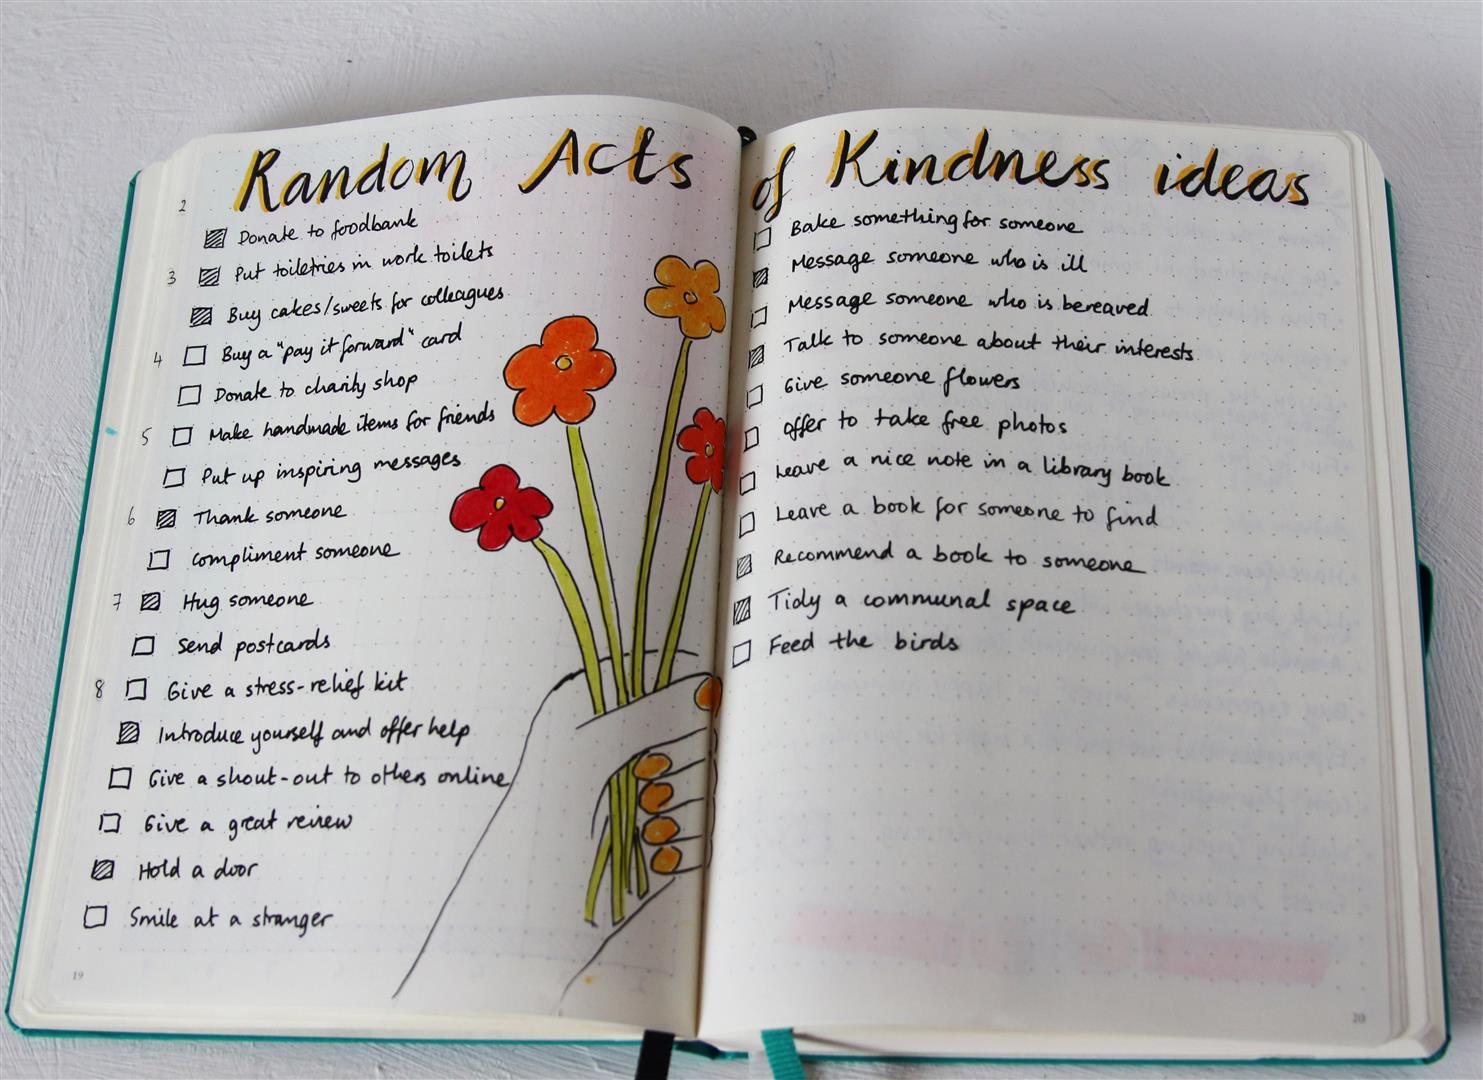 Random Acts of Kindness ideas
2
Donate to foodbank
3
Put toiletries in work toilets
Buy cakes/sweets for colleagues
4
Buy a "pay it forward" card
Donate to charity shop
5
Make handmade items for friends
Put up inspiring messages
6
Thank someone
compliment someone
7
Hug someone
Send postcards
8
Give a stress-relief kit
Introduce yourself and offer help
Give a shout-out to others online
Give a great review
Hold a door
Smile at a stranger
19
Bake something for someone
Message someone who is ill
Message someone who is bereaved
Talk to someone about their interests
Give someone flowers
Offer to take free photos
Leave a nice note in a library book
Leave a book for someone to find
Recommend a book to someone
Tidy a communal space
Feed the birds
20